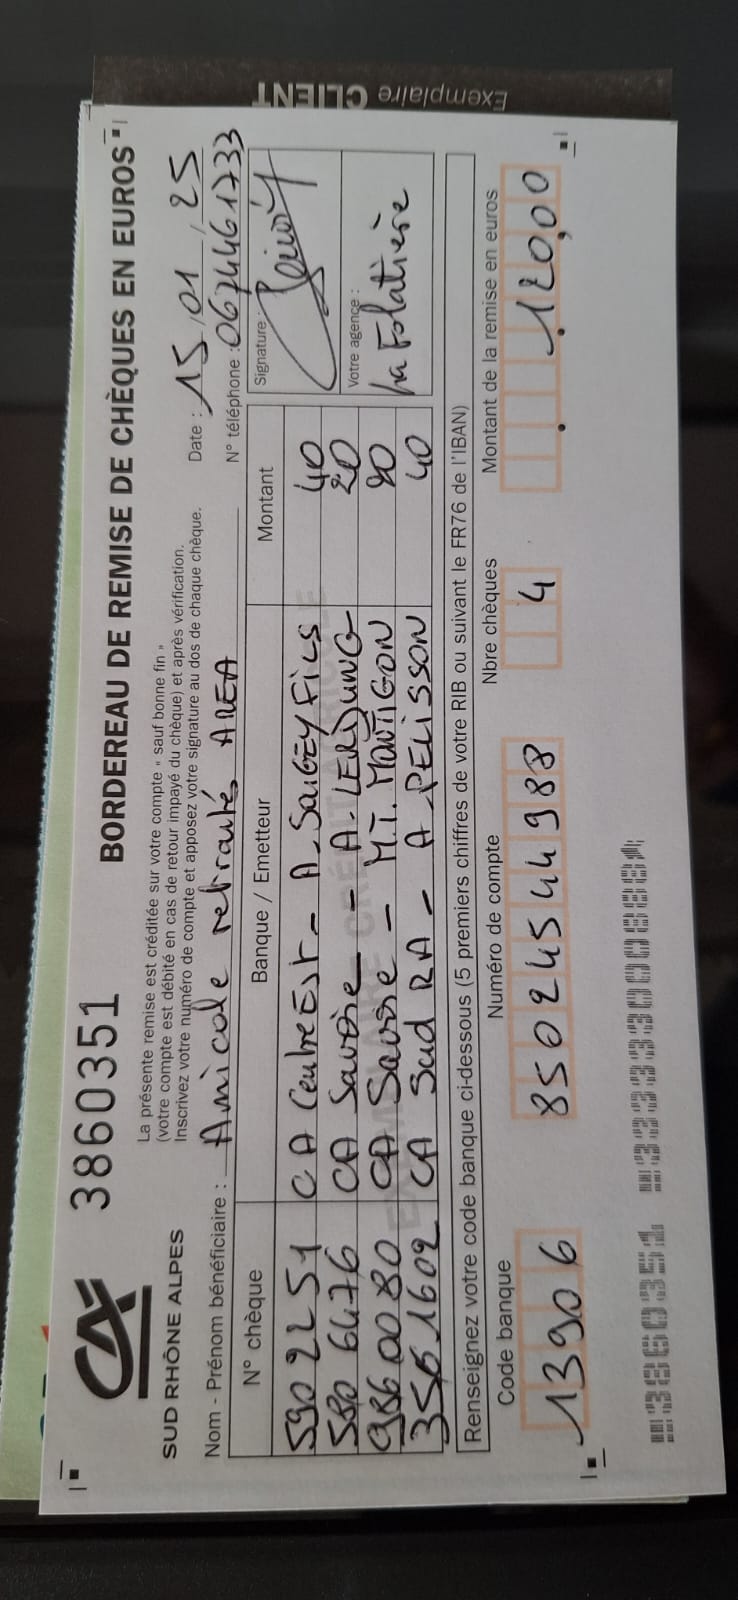 Exemplaire CLIENT
CA
SUD RHÔNE ALPES
3860351
BORDEREAU DE REMISE DE CHÈQUES EN EUROS
La présente remise est créditée sur votre compte « sauf bonne fin »
(votre compte est débité en cas de retour impayé du chèque) et après vérification.
Inscrivez votre numéro de compte et apposez votre signature au dos de chaque chèque.
Date : 15/01/25
Nom - Prénom bénéficiaire : Amicale retraités AREA
N° téléphone : 0674461733
N° chèque Banque / Emetteur Montant
5902251 CA Centre Est - A. SAIGEY FICS 40
5806476 CA Savoie - A. LERDUNG 20
9860080 CA Savoie - M.T. MONTIGON 20
3561602 CA Sud RA - A PELISSON 40
Signature :
Votre agence :
La Folatière
EXEMPLAIRE CRÉDIT AGRICOLE
Renseignez votre code banque ci-dessous (5 premiers chiffres de votre RIB ou suivant le FR76 de l'IBAN)
Code banque Numéro de compte Nbre chèques Montant de la remise en euros
13906 85024544988 4 120,00